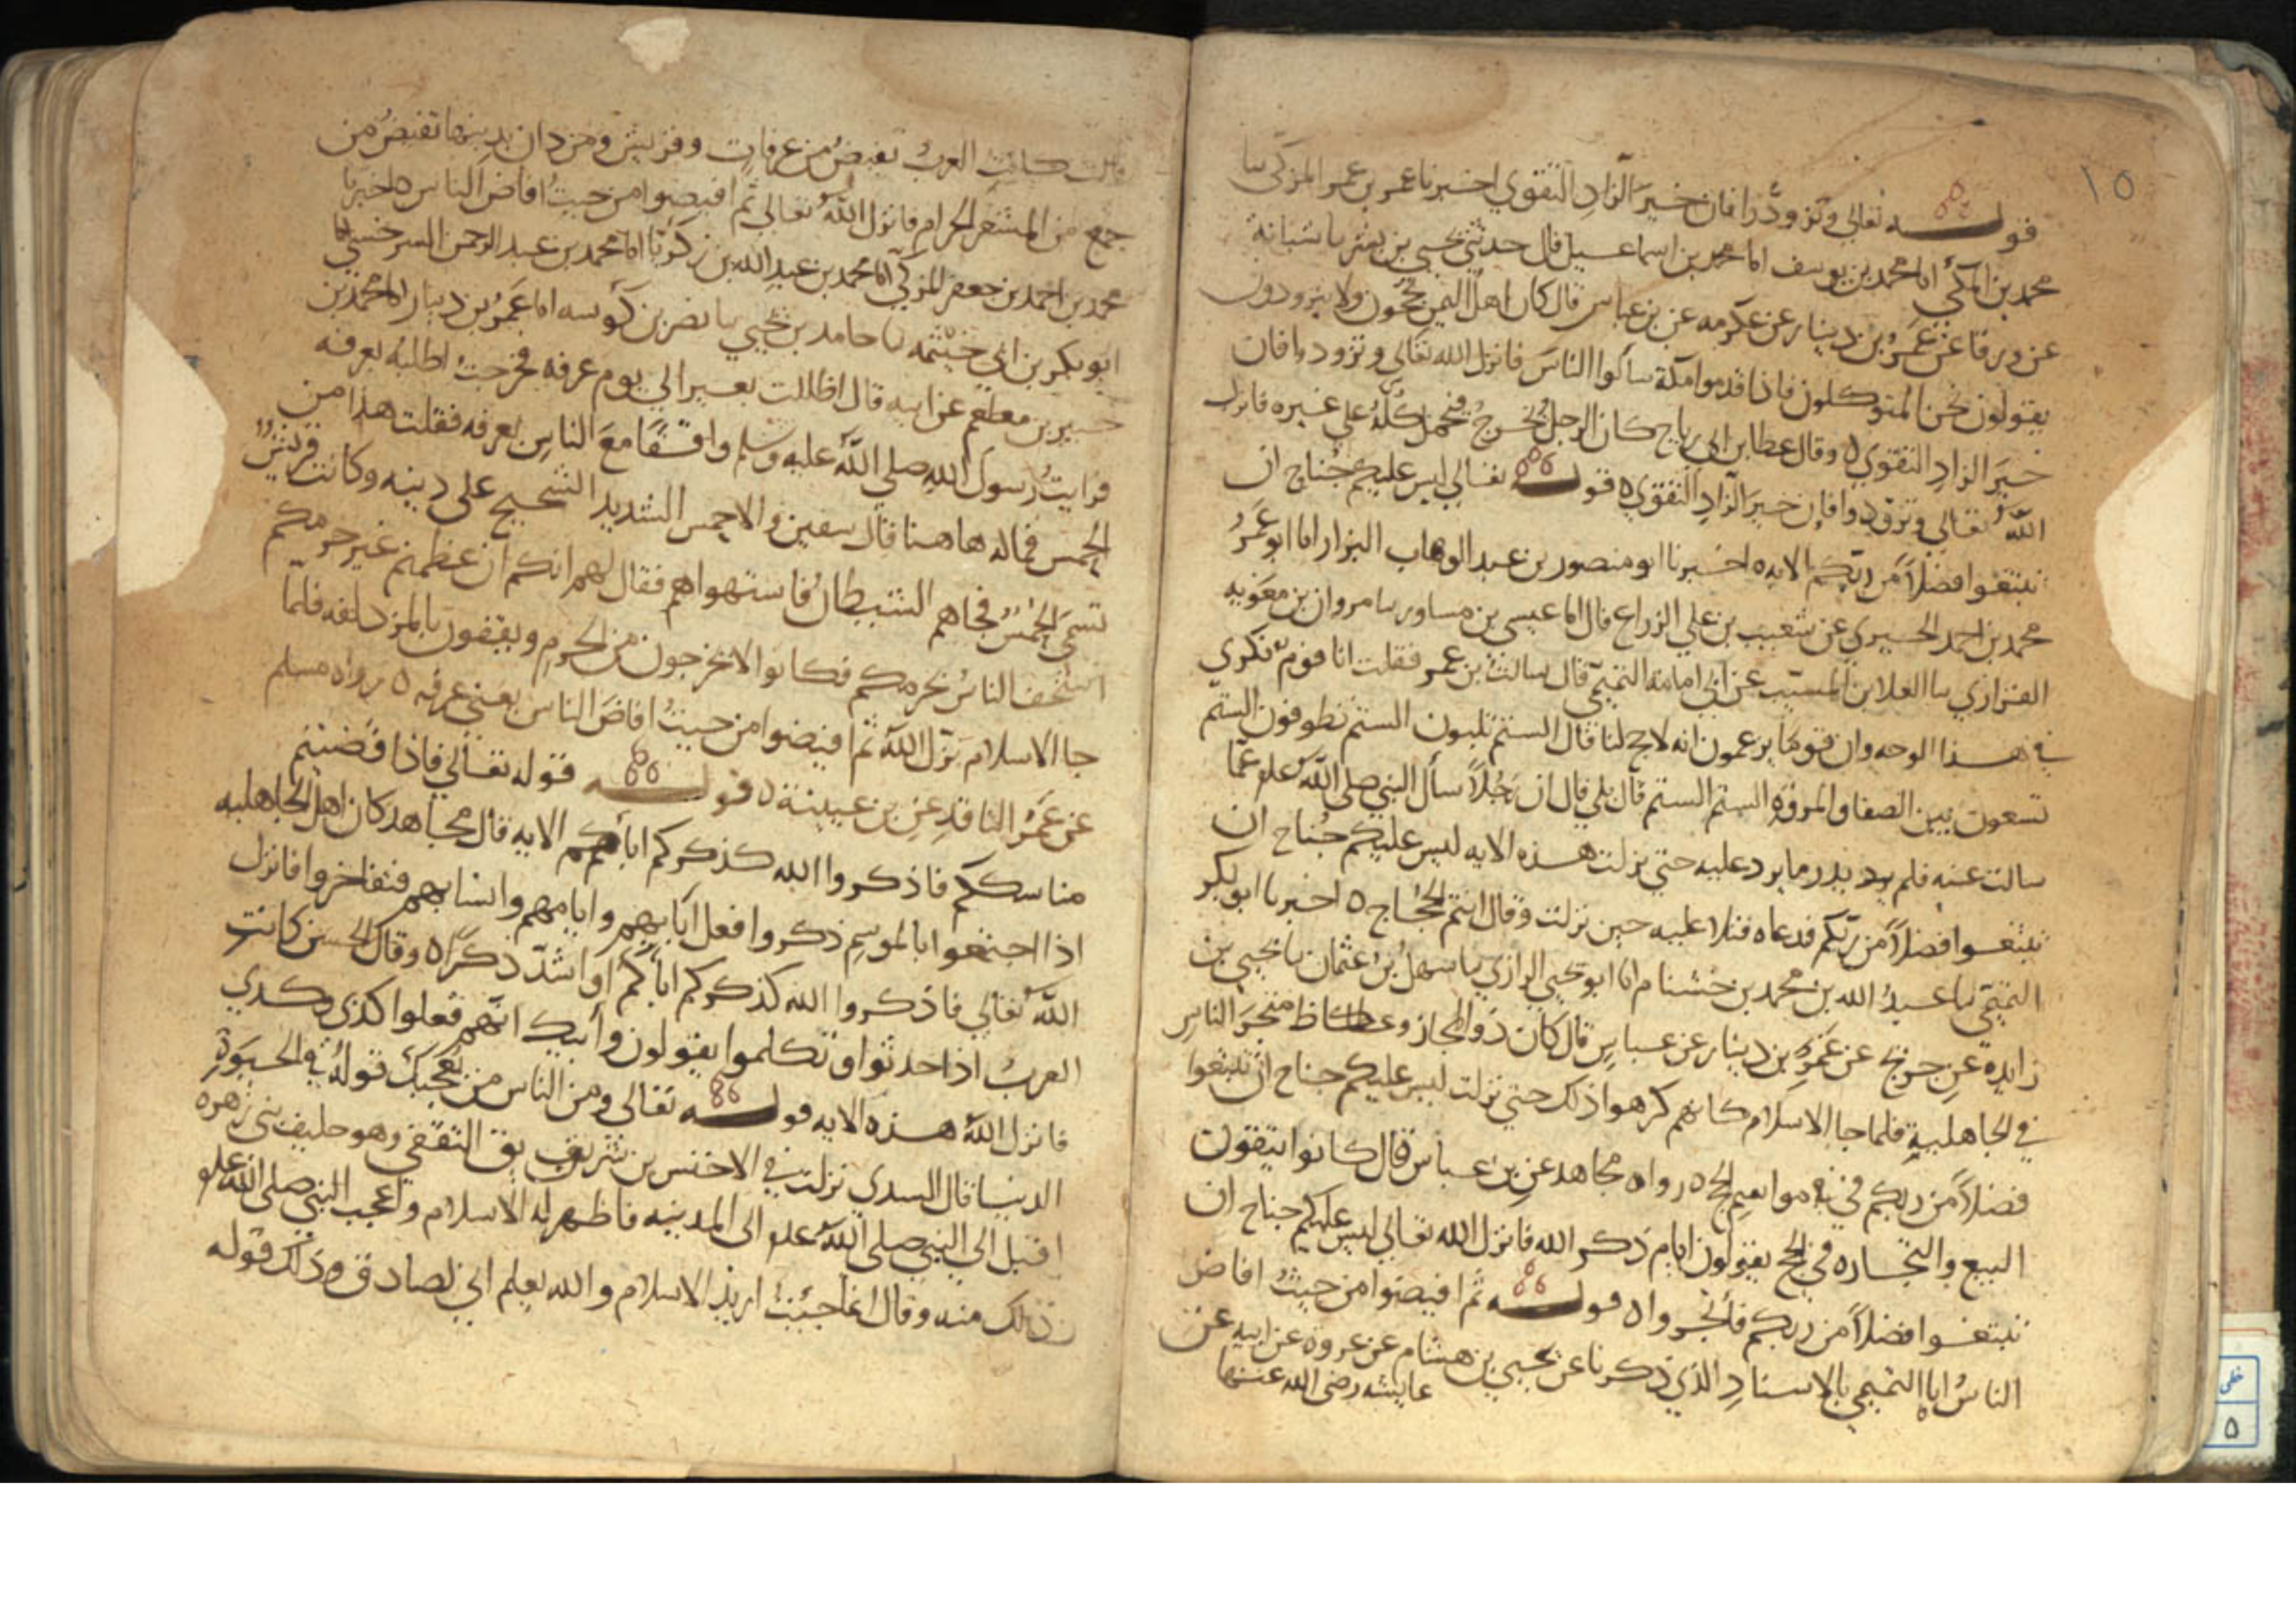 ١٥
قوله تعالى وتزودوا فان خير الزاد التقوي اخبرنا عمر بن عمر المزكي نا
محمد بن المكي انا محمد بن يوسف انا محمد بن اسماعيل قال حدثني يحيي بن بشر نا شبابة
عن ورقا عن عمرو بن دينار عن عكرمه عن بن عباس قال كان اهل اليمن يحجون ولا يتزودون
يقولون نحن المتوكلون فاذا قدموا مكة سألوا الناس فانزل الله تعالى وتزودوا فان
خير الزاد التقوي ٥ وقال عطا بن ابي رباح كان الرجل يخرج فيحمل كله علي غيره فانزل
الله تعالي وتزودوا فإن خير الزاد التقوي ٥ قوله تعالي ليس عليكم جناح ان
تبتغوا فضلاً من ربكم الايه ٥ اخبرنا ابو منصور بن عبد الوهاب البزار انا ابو عمرُ
محمد بن احمد الحيري عن شعيب بن علي الزراع قال انا عيسي بن مساور نا مروان بن معويه
الفزاري نا العلا بن المسيب عن ابي امامة التميمي قال سالت بن عمر فقلت انا قوم نكري
في هذا الوجه وان قوما يزعمون انه لا حج لنا قال الستم تلبون الستم تطوفون الستم
تسعون بين الصفا والمروة الستم الستم قال بلي قال ان رجلاً سأل النبي صلي الله عليه عما
سالت عنه فلم يرد يدر ما يرد عليه حتي نزلت هذه الايه ليس عليكم جناح ان
تبتغوا فضلاً من ربكم فدعاه فتلا عليه حين نزلت وقال انتم الحجاج ٥ اخبرنا ابو بكر
التميمي نا عبد الله بن محمد بن خشنام انا ابو يحيي الرازي نا سهل بن عثمان نا يحيي بن
زايده عن جريج عن عمرو بن دينار عن عباس قال كان ذو المجاز وعكاظ متجر الناس
في الجاهلية فلما جا الاسلام كانهم كرهوا ذلك حتي نزلت ليس عليكم جناح ان تبتغوا
فضلاً من ربكم في مواسم الحج ٥ رواه مجاهد عن بن عباس قال كانوا يتقون
البيع والتجاره في الحج يقولون ايام ذكر الله فانزل الله تعالي ليس عليكم جناح ان
تبتغوا فضلاً من ربكم فاتجروا ٥ قوله ثم افيضوا من حيث افاض
الناس انا التميمي بالاسناد الذي ذكرنا عن يحيي بن هشام عن عروة عن ابيه عن
عايشه رضي الله عنها
قالت كانت العرب تفيض من عرفات وقريش ومن دان بدينها تفيض من
جمع من المشعر الحرام فانزل الله تعالي ثم افيضوا من حيث افاض الناس ٥ اخبرنا
محمد بن احمد بن جعفر المزكي انا محمد بن عبد الله بن زكريا انا محمد بن عبد الرحمن السرخسي نا
ابو بكر بن ابي خيثمه نا حامد بن يحيي نا نصر بن كوسه انا عمرو بن دينار انا محمد بن
جبير بن مطعم عن ابيه قال اظللت بعيرا لي يوم عرفه فخرجت اطلبه بعرفه
فرايت رسول الله صلي الله عليه وسلم واقفًا مع الناس بعرفه فقلت هذا من
الحمس فماله هاهنا قال سفين والاحمس الشديد الشحيح علي دينه وكانت قريش
تسمي الحمس فجاهم الشيطان فاستهواهم فقال لهم انكم ان عظمتم غير حرمكم
استخف الناس بحرمكم فكانوا لا يخرجون من الحرم ويقفون بالمزدلفه فلما
جا الاسلام نزل الله ثم افيضوا من حيث افاض الناس يعني عرفه ٥ رواه مسلم
عن عمرو الناقد عن بن عيينة ٥ قوله قوله تعالي فاذا قضيتم
مناسككم فاذكروا الله كذكركم اباكم الايه قال مجاهد كان اهل الجاهليه
اذا اجتمعوا بالموسم ذكروا فعل آبايهم وايامهم وانسابهم فتفاخروا فانزل
الله تعالي فاذكروا الله كذكركم اباكم او اشد ذكرًا ٥ وقال الحسن كانت
العرب اذا حدثوا وتكلموا يقولون وأبيك انهم فعلوا كذي وكذي
فانزل الله هذه الايه قوله تعالي ومن الناس من يعجبك قوله في الحيوة
الدنيا قال السدي نزلت في الاخنس بن شريق الثقفي وهو حليف بني زهره
اقبل الي النبي صلي الله عليه الى المدينه فاظهر له الاسلام واعجب النبي صلي الله عليه
ذلك منه وقال انما جيت اريد الاسلام والله يعلم اني لصادق وذلك قوله
خطى
٥